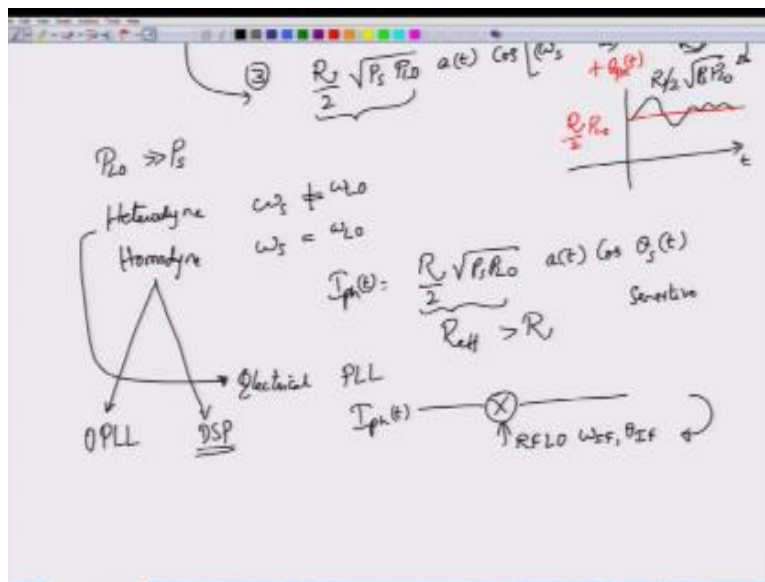 ③ R/2 √P_S P_LO a(t) Cos [(ω_S
+ θ_pn(t)
R/2 √P_S P_LO
R/2 P_LO
t
P_LO ≫ P_S
Heterodyne ω_S ≠ ω_LO
Homodyne ω_S = ω_LO
I_ph(t) = R/2 √P_S P_LO a(t) Cos θ_S(t)
R_eff > R
Electrical PLL
I_ph(t) X
OPLL DSP
RFLO ω_IF, θ_IF